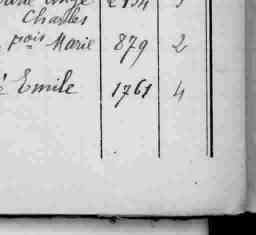 Charles
çois Marie 879 2
Emile 1761 4